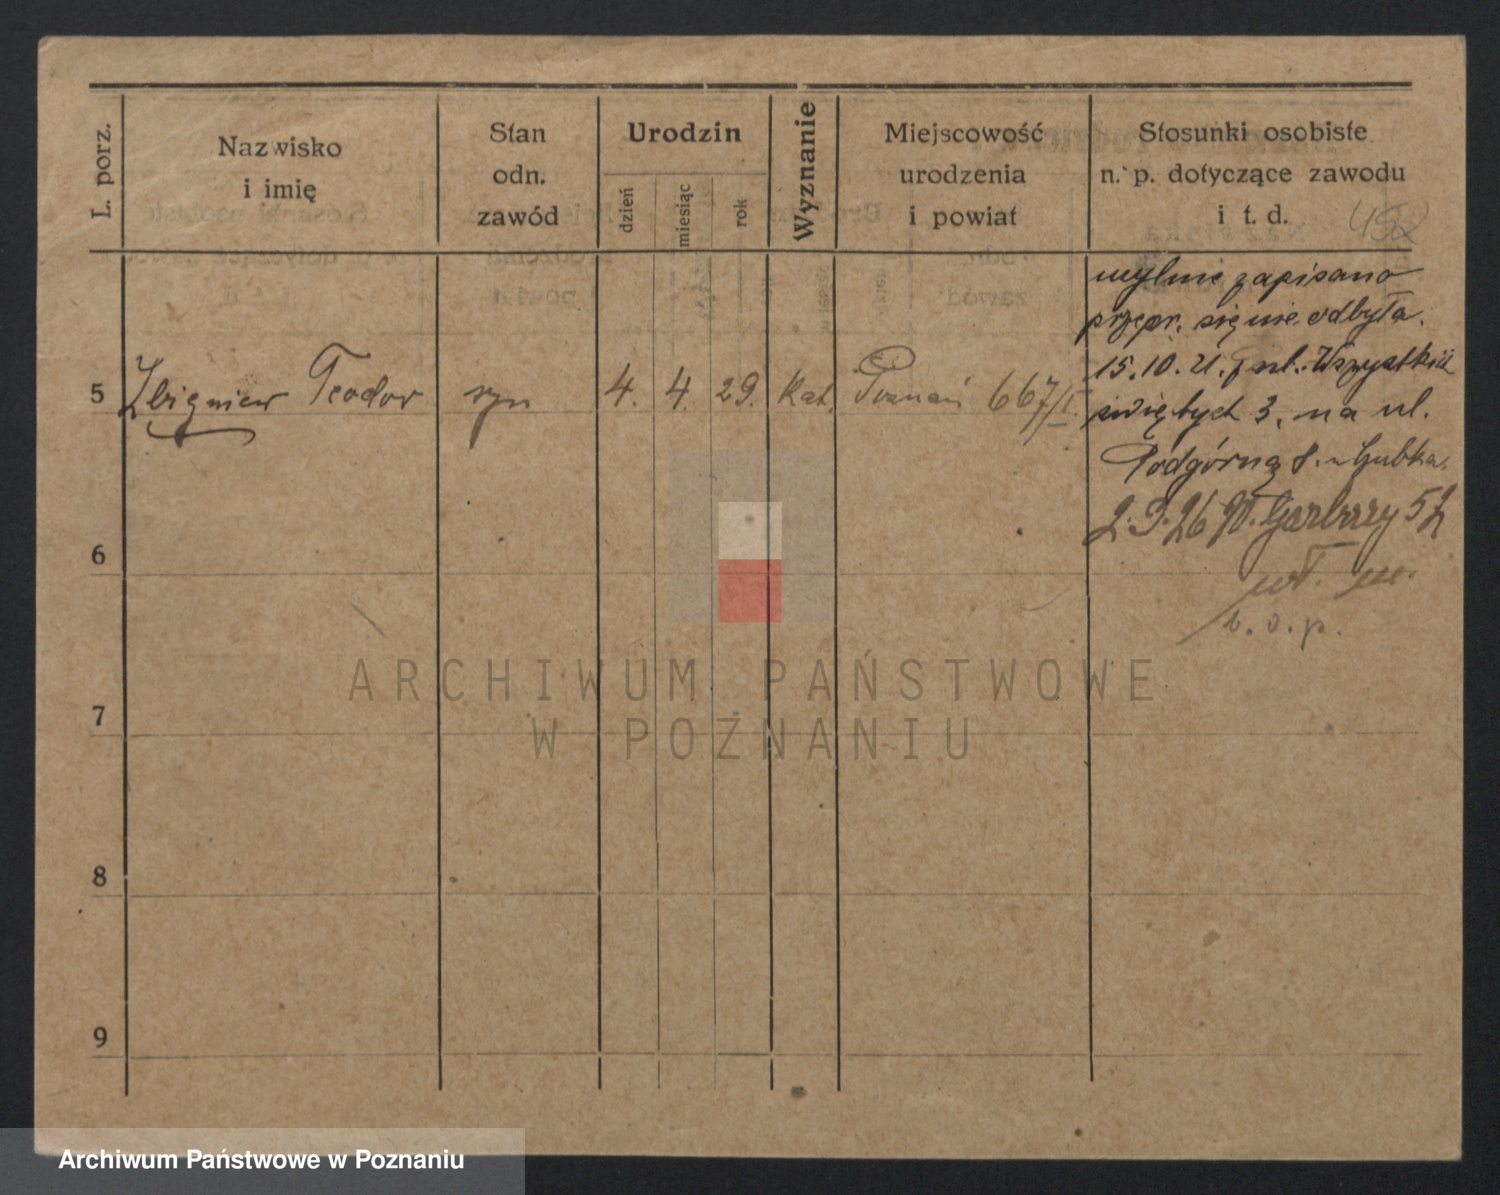 L. porz.
Nazwisko
i imię
Stan
odn.
zawód
Urodzin
dzień
miesiąc
rok
Wyznanie
Miejscowość
urodzenia
i powiat
Stosunki osobiste
n. p. dotyczące zawodu
i t. d.
mylnie zapisano
przepr. się nie odbyła.
5 Zbigniew Teodor syn 4. 4. 29. kat. Poznań 667/I.
15.10.21. z ul. Wszystkich
świętych 3, na ul.
Podgórną 8. u Gubka.
2.9.26 W. Garbary 52
wł. m.
b. o. p.
6
7
8
9
ARCHIWUM PAŃSTWOWE
W POZNANIU
Archiwum Państwowe w Poznaniu